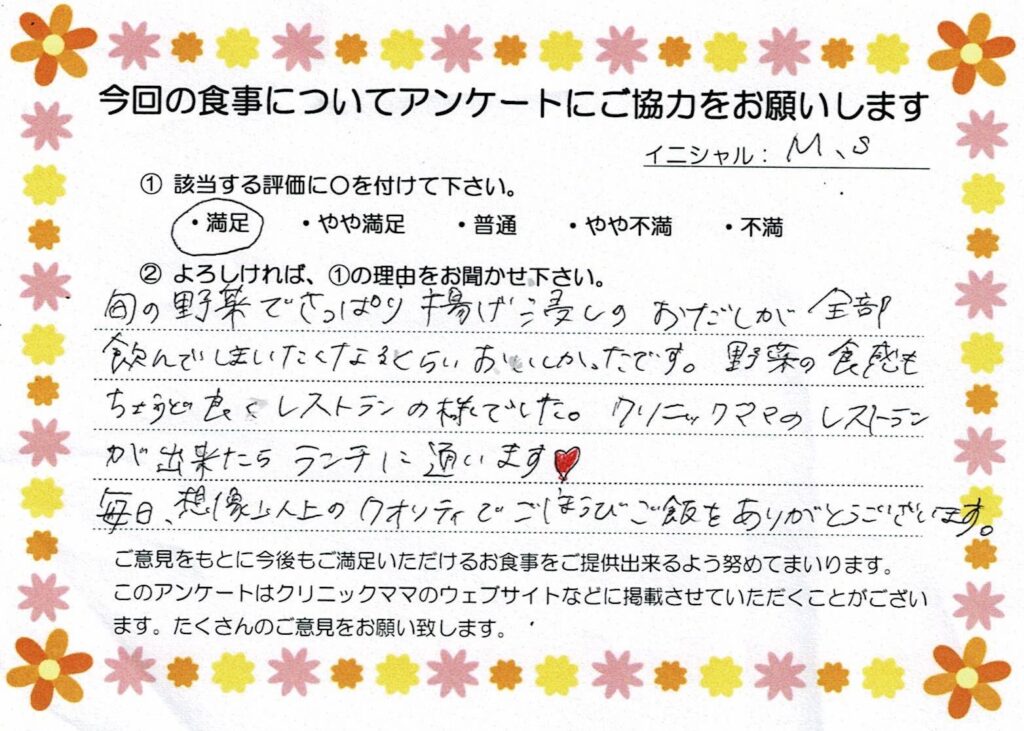 今回の食事についてアンケートにご協力をお願いします
イニシャル： M、S
① 該当する評価に〇を付けて下さい。
・満足 ・やや満足 ・普通 ・やや不満 ・不満
② よろしければ、①の理由をお聞かせ下さい。
旬の野菜でさっぱり 揚げ浸しの おだしが 全部
飲んでしまいたくなるくらい おいしかったです。 野菜の食感も
ちょうど良くレストランの様でした。 クリニックママのレストラン
が出来たら ランチに 通います♥
毎日、想像以上のクオリティで ごほうびご飯を ありがとうございます。
ご意見をもとに今後もご満足いただけるお食事をご提供出来るよう努めてまいります。
このアンケートはクリニックママのウェブサイトなどに掲載させていただくことがござい
ます。たくさんのご意見をお願い致します。